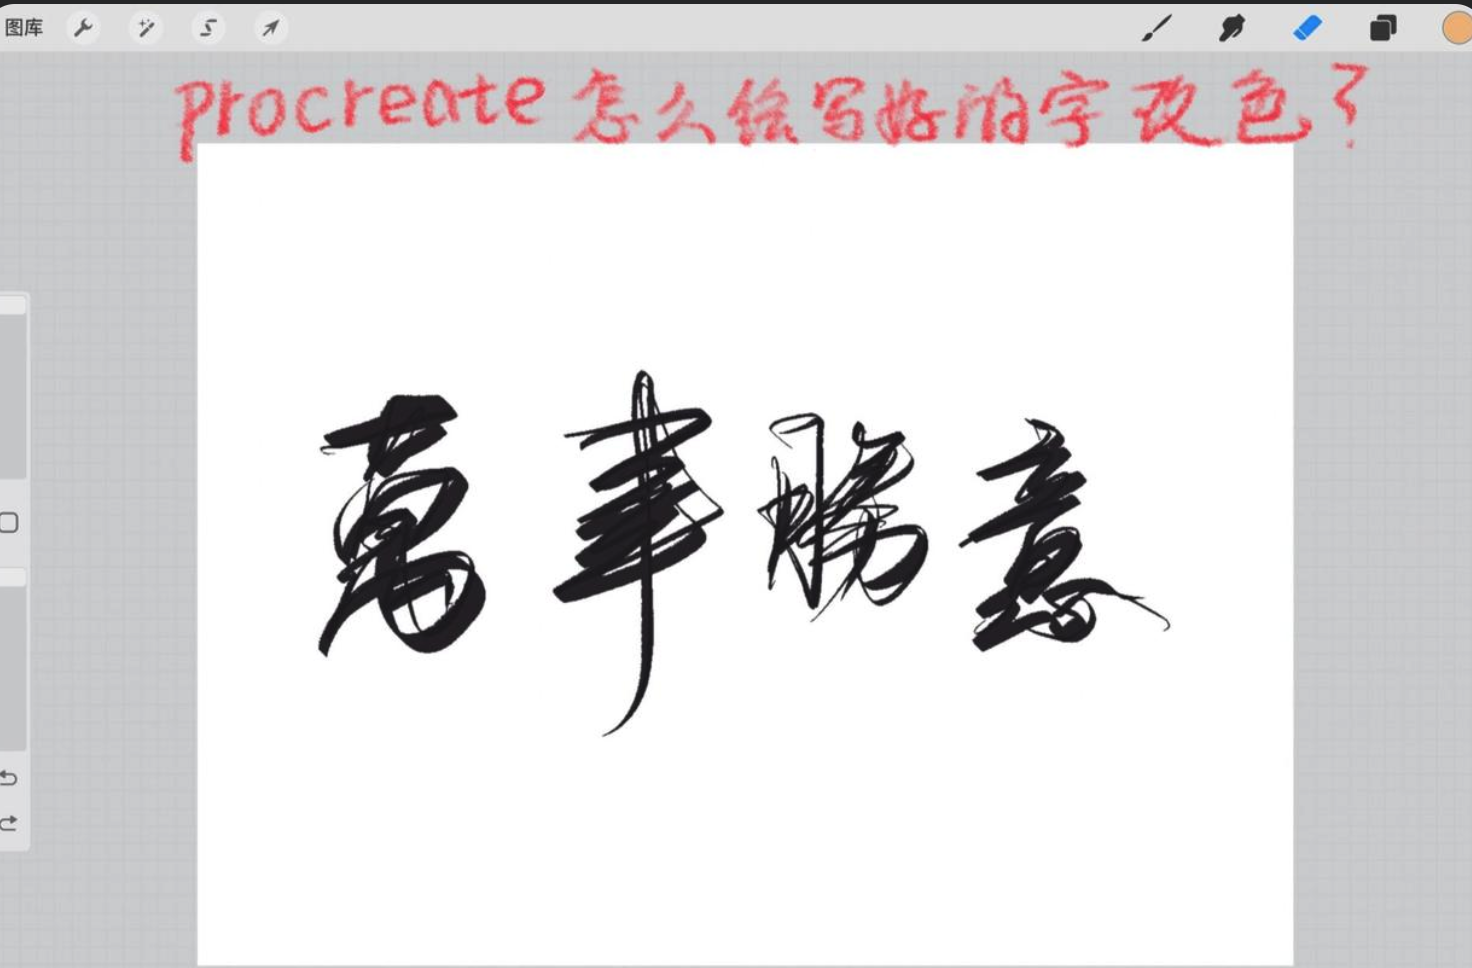 图库
procreate 怎么给写好的字改色?
萬事勝意